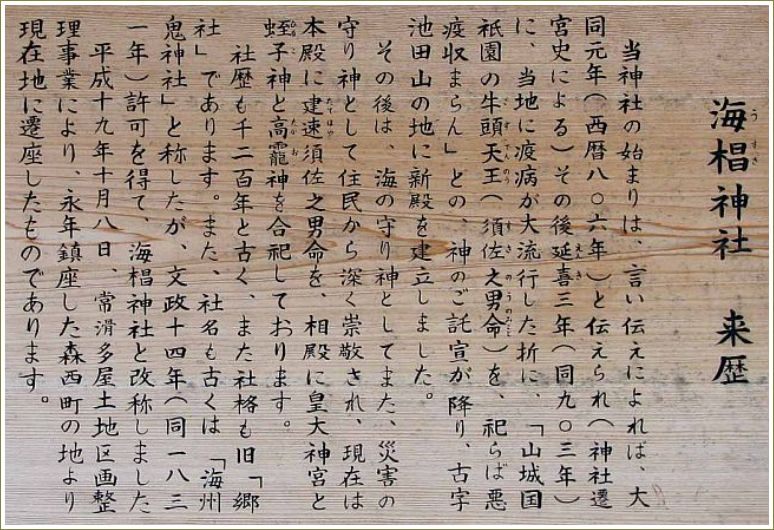 海椙神社　来歴
うすぎ
当神社の始まりは、言い伝えによれば、大
同元年(西暦八〇六年)と伝えられ(神社遷
宮史による)その後延喜三年(同九〇三年)
えんき
に、当地に疫病が大流行した折に、「山城国
祇園の牛頭天王(須佐之男命)を、祀らば悪
疫収まらん」との、神のご託宣が降り、古字
池田山の地に新殿を建立しました。
その後は、海の守り神としてまた、災害の
守り神として住民から深く崇敬され、現在は
本殿に建速須佐之男命を、相殿に皇大神宮と
たてはや
蛭子神と高龗神を合祀しております。
社歴も千二百年と古く、また社格も旧「郷
社」であります。また、社名も古くは「海州
鬼神社」と称したが、文政十四年(同一八三
一年)許可を得て、海椙神社と改称しました
平成十九年十月八日、常滑多屋土地区画整
理事業により、永年鎮座した森西町の地より
現在地に遷座したものであります。